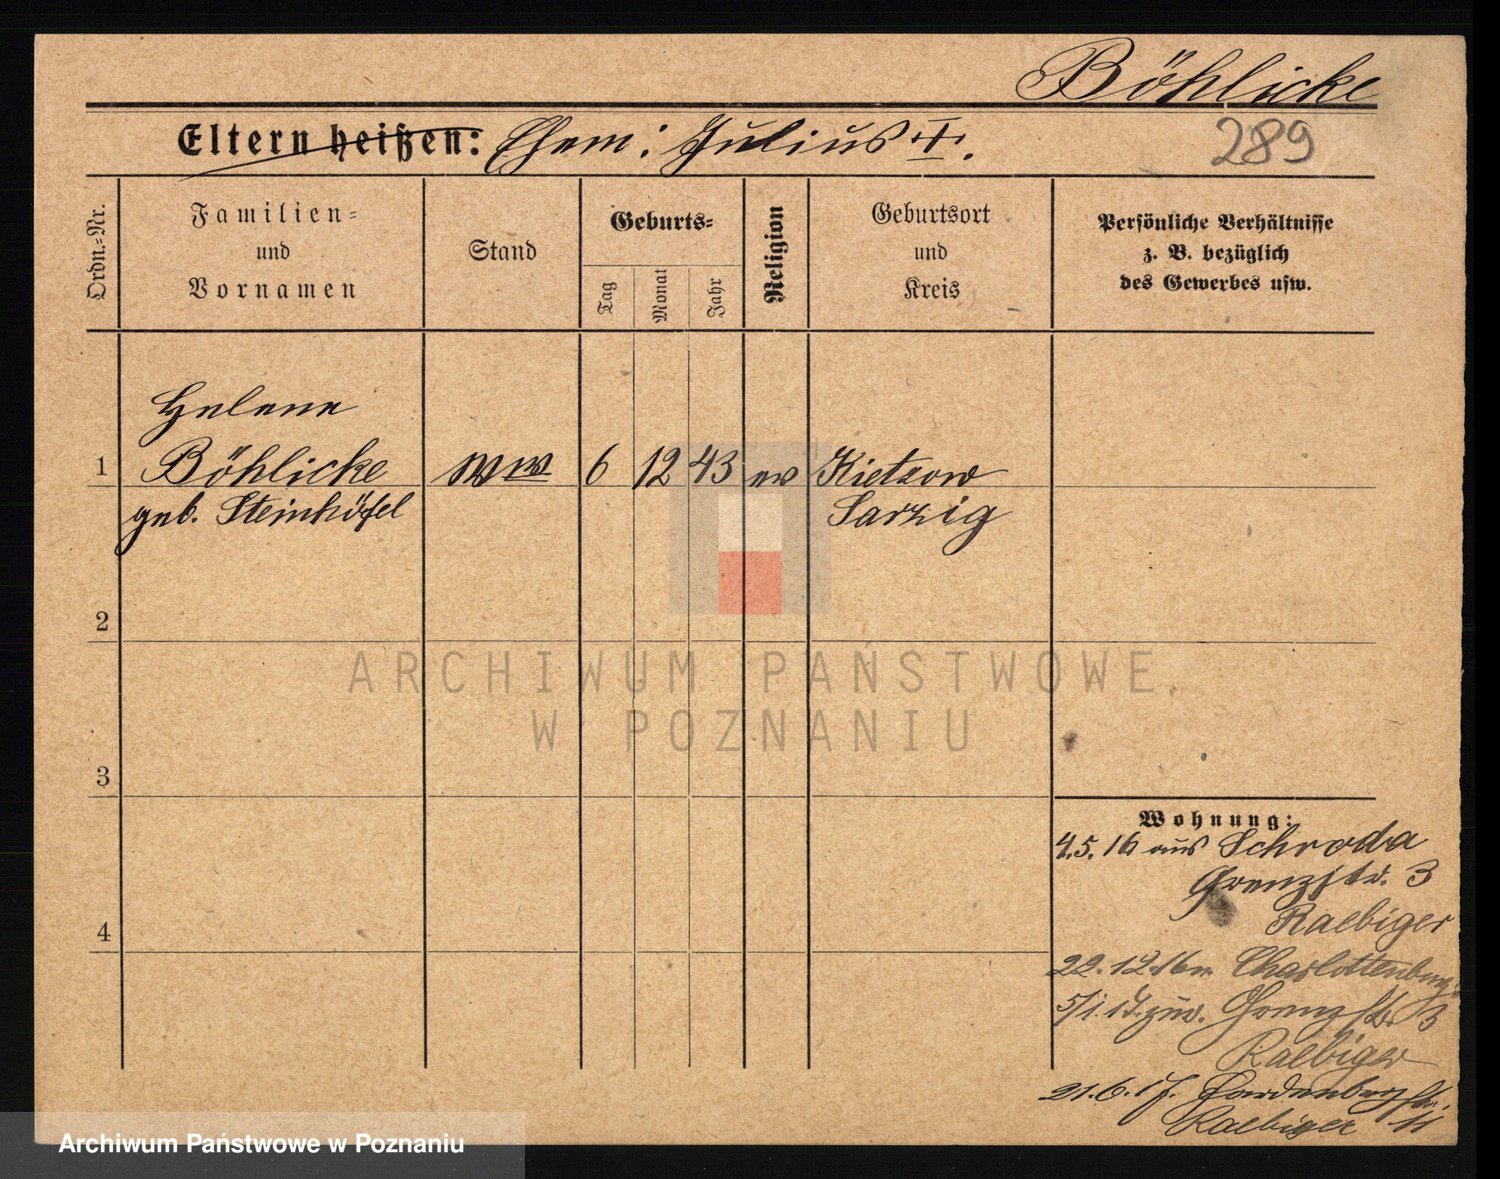 Böhlicke
Eltern heißen: Ehem: Julius †.
289
Ordn.-Nr.
Familien-
und
Vornamen
Stand
Geburts-
Tag
Monat
Jahr
Religion
Geburtsort
und
Kreis
Persönliche Verhältnisse
z. B. bezüglich
des Gewerbes usw.
Helene
1 Böhlicke Ww 6 12 43 ev Kietzow
geb. Steinhöfel Sarzig
2
ARCHIWUM PAŃSTWOWE
W POZNANIU
3
Wohnung:
4.5.16 aus Schroda
Grenzstr. 3
Raebiger
4
22.12.16 n. Charlottenburg
5/1.17. zur. Grenzstr 3
Raebiger
21.6.17. Hardenbergstr. 11
Raebiger
Archiwum Państwowe w Poznaniu